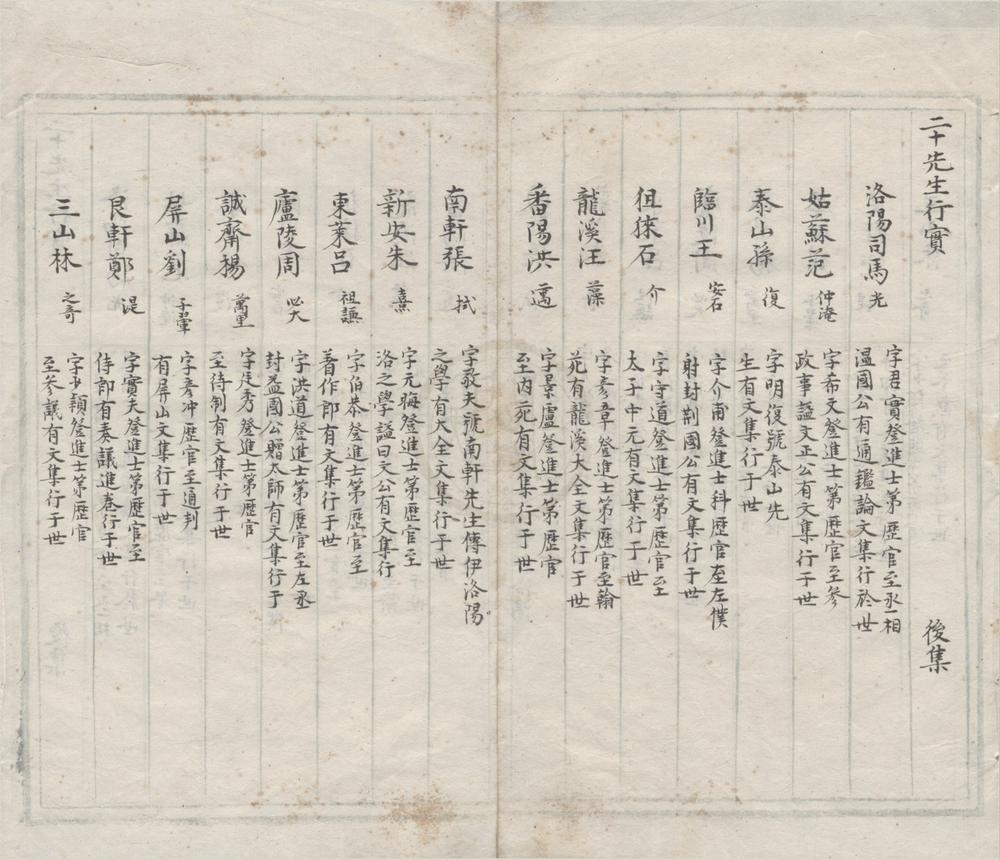 二十先生行實 後集
洛陽司馬 光 字君實登進士第歷官至丞相
溫國公有通鑑論文集行於世
姑蘇范 仲淹 字希文登進士第歷官至參
政事謚文正公有文集行于世
泰山孫 復 字明復號泰山先
生有文集行于世
臨川王 安石 字介甫登進士科歷官至左僕
射封荆國公有文集行于世
徂徠石 介 字守道登進士第歷官至
太子中元有文集行于世
龍溪汪 藻 字彥章登進士第歷官至翰
苑有龍溪大全文集行于世
番陽洪 邁 字景盧登進士第歷官
至内苑有文集行于世
南軒張 拭 字敬夫號南軒先生傳伊洛陽
之學有大全文集行于世
新安朱 熹 字元晦登進士第歷官至
洛之學謚曰文公有文集行
東萊呂 祖謙 字伯恭登進士第歷官至
著作郎有文集行于世
廬陵周 必大 字洪道登進士第歷官至左丞
封益國公贈太師有文集行于
誠齋楊 萬里 字廷秀登進士第歷官
至待制有文集行于世
屏山劉 子翬 字彥冲歷官至通判
有屏山文集行于世
艮軒鄭 湜 字實夫登進士第歷官至
侍郎有奏議進卷行于世
三山林 之奇 字少穎登進士第歷官
至參議有文集行于世